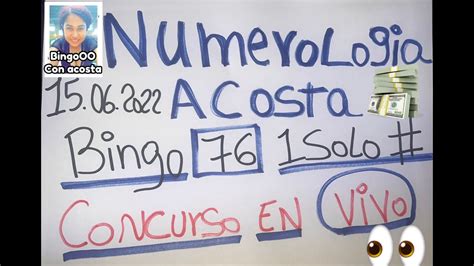 BingoOO
Con acosta
NumeroLogia
15.06.2022 ACosta
Bingo 76 1Solo #
CONCURSO EN ViVo